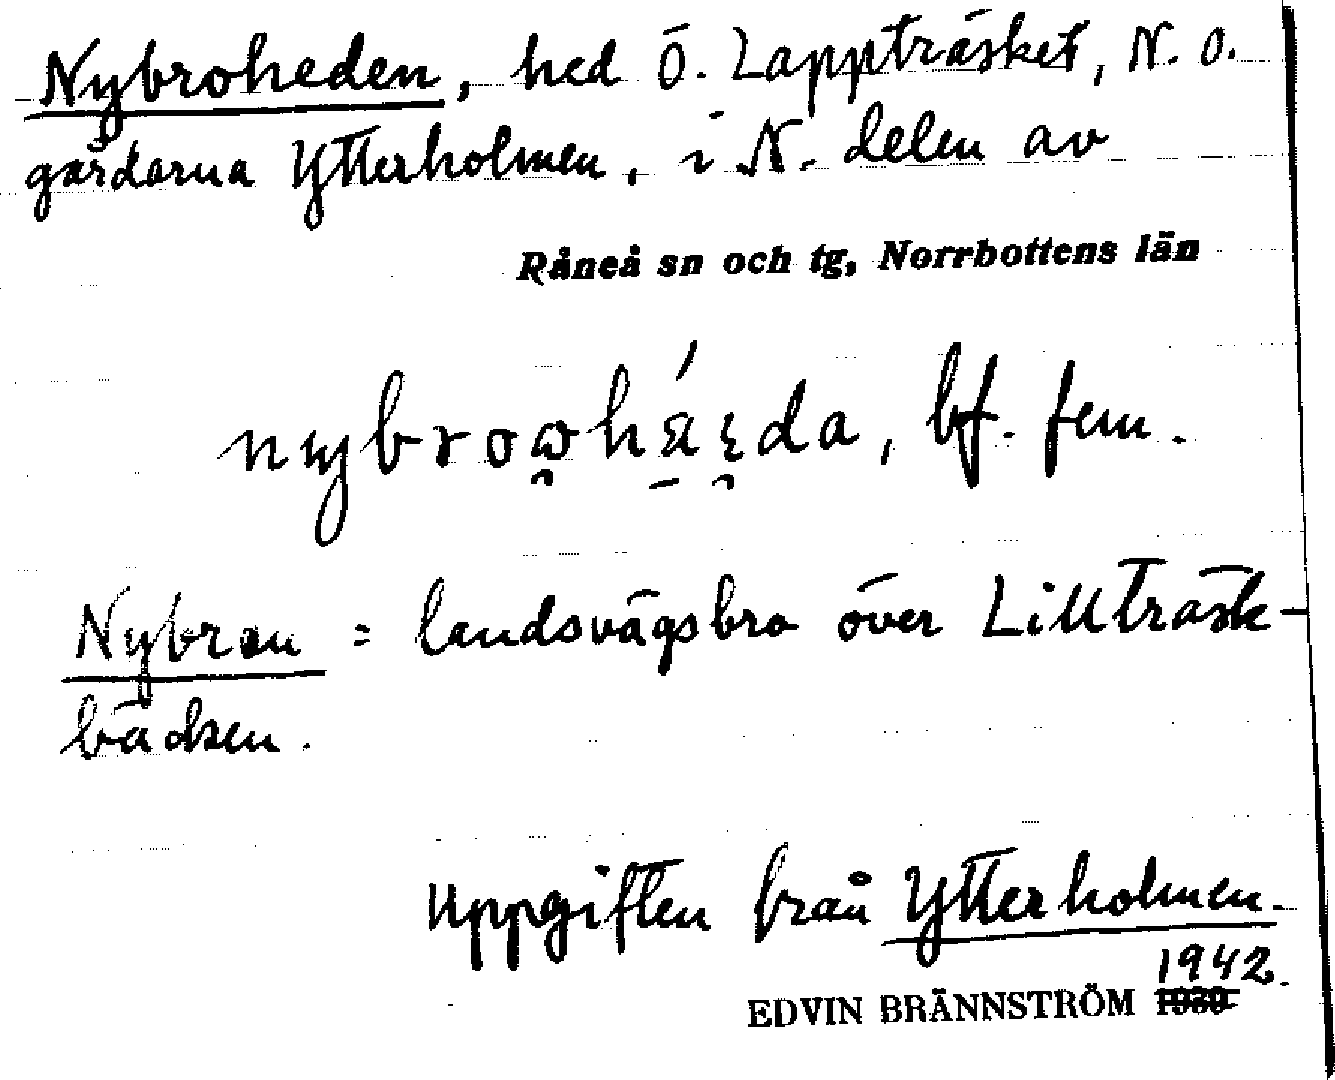 Nybroheden, hed Ö. Lappträsket, N. O.
gårdarna Ytterholmen, i N. delen av
Råneå sn och tg, Norrbottens län
bf. fem.
Nybron = landsvägsbro över Lillträsk-
bäcken.
Uppgiften från Ytterholmen.
1942.
EDVIN BRÄNNSTRÖM 1930